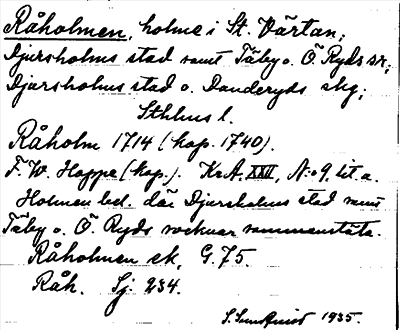 Råholmen, holme i St. Värtan;
Djursholms stad samt Täby o. Ö. Ryds snr;
Djursholms stad o. Danderyds skg;
Sthlms l.
Råholm 1714 (kop. 1740).
F. W. Hoppe (kop.). Kr.A. XXII, N:o 9 lit. a.
Holmen bel. där Djursholms stad samt
Täby o. Ö. Ryds socknar sammanstöta.
Råholmen ek. G. 75.
Råh. Sj. 234.
1935.